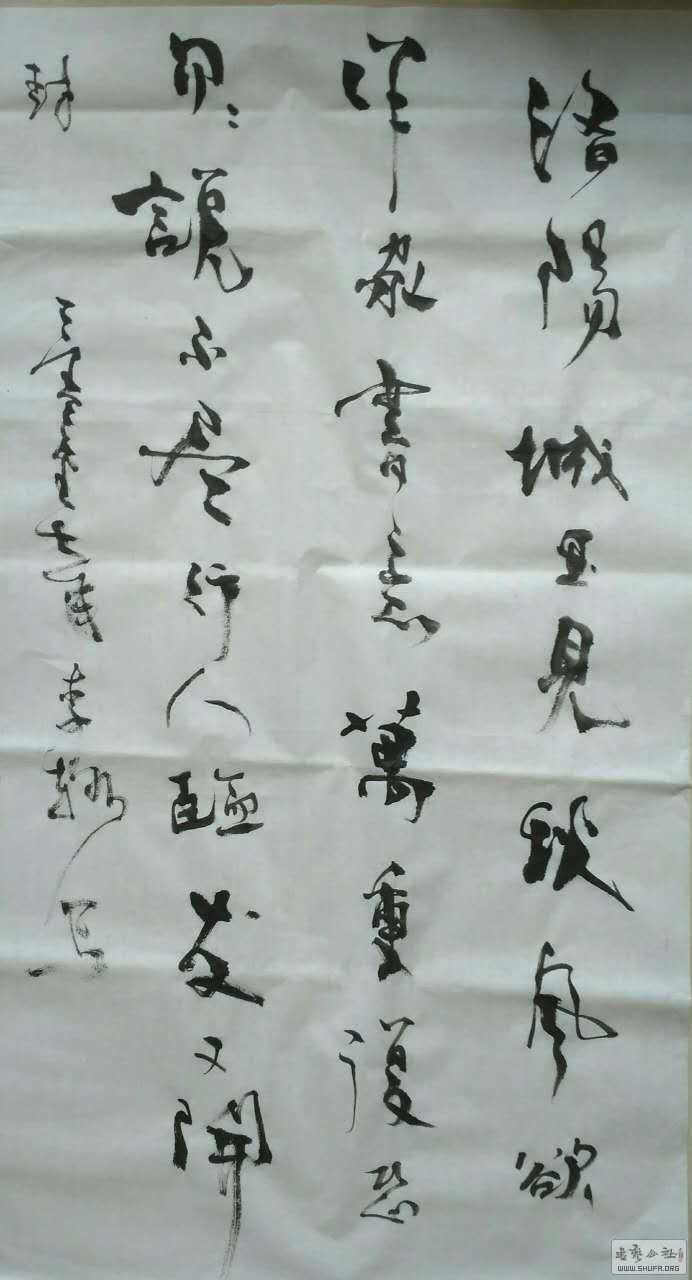 洛陽城里見秋風欲
作家書意萬重復恐
匆〻說不尽行人臨發又開
封
李
書藝公社
WWW.SHUFA.ORG